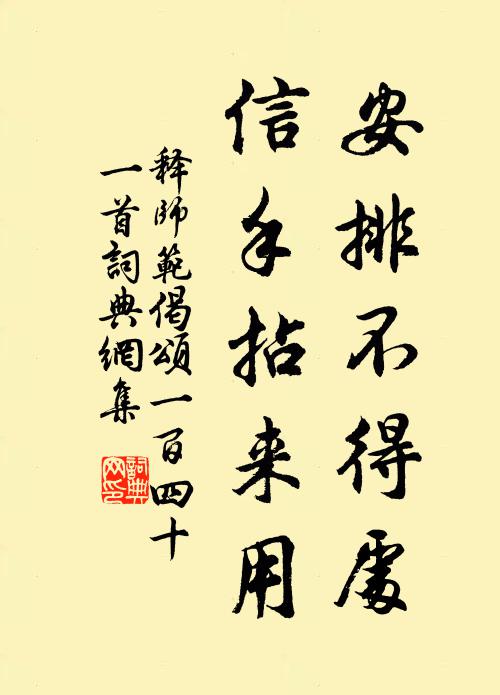 安排不得處
信手拈来用
释師範偈頌一百四十
一首詞典網集
詞典
网印